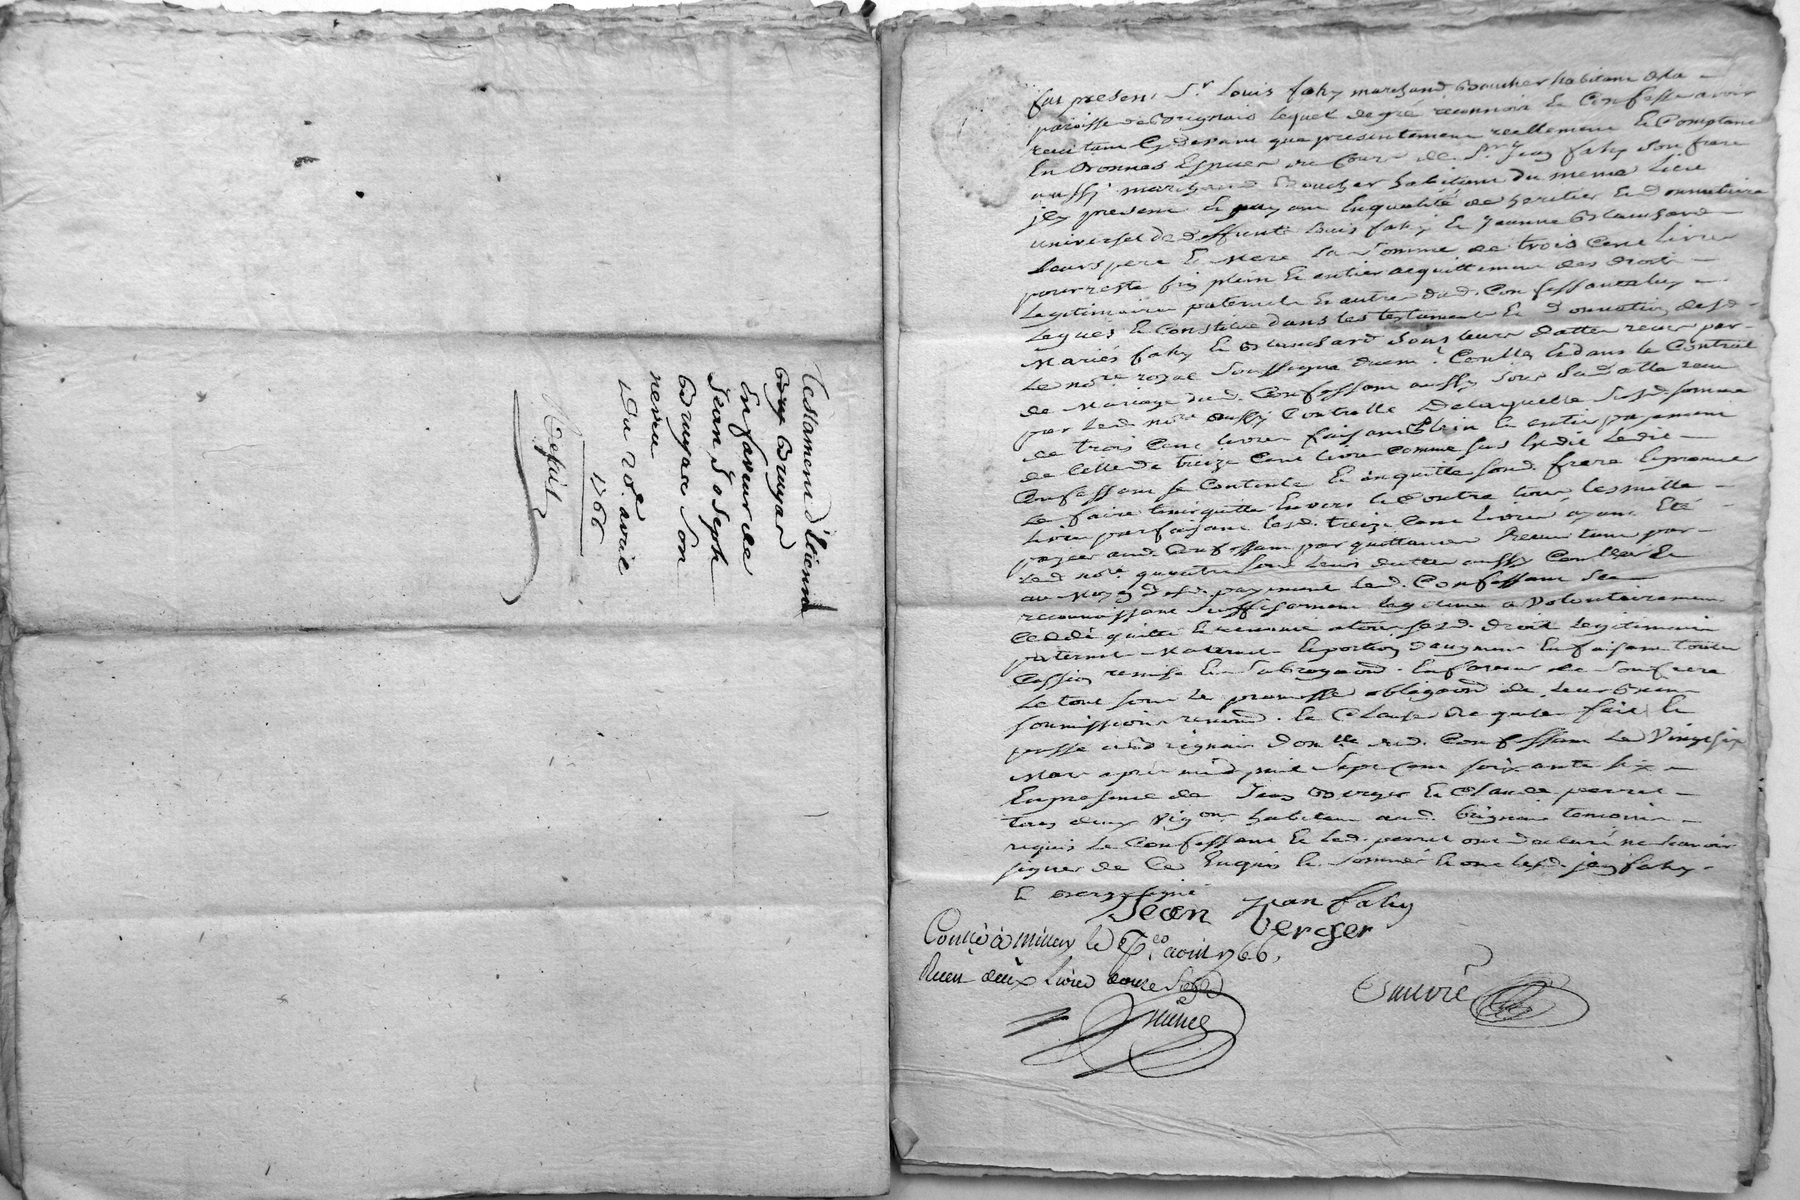 Testament d'Etienne
Bruyas
en faveur de
Jean Joseph
Bruyas son
neveu
Du 28e avril
1766
fut present Sr Louis fahy marchand Boucher habitant de la
paroisse de Brignais lequel de gré reconnoit et Confesse avoir
receu tant Cy devant que presentement reellement et Comptant
En Bonnes Especes de Cours de Sr Jean fahy son frere
aussy marchand Boucher habitant du meme lieu
jcy present et payant En qualité de heritier et Donnataire
universel de deffunts Louis fahy et Jeanne Blanchard
leurs pere et Mere la somme de trois Cent livres
pour reste fin plein et entier acquittement des droits
Legitimaires paternels et autres dud. Confessant luy
Legués et Constitués dans les testament et Donnation desd.
Mariés fahy et Blanchard sous leurs dattes receus par
Le nore royal soussigné Et dans le Contrat
de Mariage dud. Confessant aussy sous sa datte receu
par led. nore aussy Controllé De laquelle susd. somme
de trois Cent livres faisant plein et entier payement
de Celle de treize Cent livres Comme sus Est dit led.
Confessant se Contente et en quitte sond. frere et promet
Le faire tenir quitte Envers et Contre tous les
livres parfaisant lesd. treize Cent livres ayant Eté
payées aud. Confessant par quittances receu tant par
led nore sous leurs dattes aussy Contllées Et
au Moyen dud. payement led. Confessant se
reconnoissant suffisament legitimé a Volontairement
Cedé quitté et renoncé a tous sesd. droits legitimaires
paternel Maternel et portion d'augment En faisant toutes
Cession remise et subrogation En faveur de son frere
Le tout sous les promesses obligaons de leurs biens
soumissions renond. et Clauses De quoy fait et
passé aud Brignais domlle dud. Confessant Le Vingt six
Mars apres midy mil sept Cent soixante six
En presence de Jean Verger et Claude perret
tous deux Vignons habitant aud. Brignais temoins
requis Le Confessant Et led. perret ont declaré ne scavoir
signer de Ce Enquis et Sommés et ont lesd. jean fahy
Et Verger signé
Jean fahy
Jean Verger
Contlé à Millery le aout 1766.
Receu deux livres douze sols